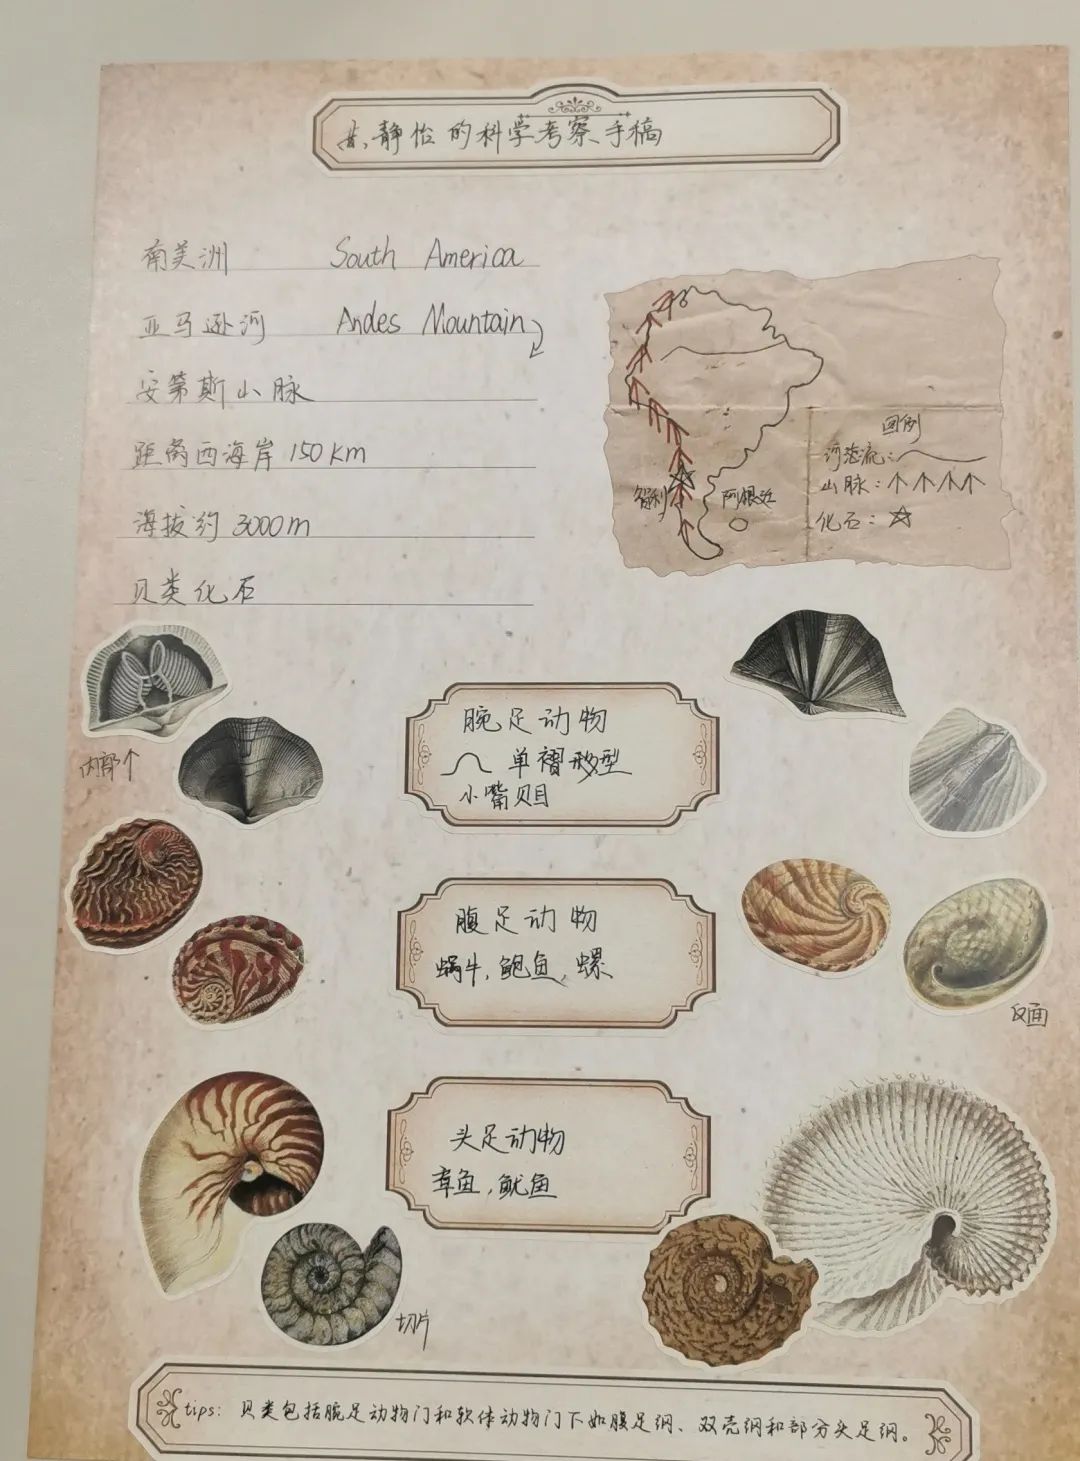 静怡的科学考察手稿
南美洲 South America
亚马逊河 Andes Mountain
安第斯山脉
距离西海岸150km
海拔约3000m
贝类化石
图例
河流:
山脉:
化石:
智利
阿根廷
内部
腕足动物
单褶型
小嘴贝目
腹足动物
蜗牛,鲍鱼,螺
反面
头足动物
章鱼,鱿鱼
切片
tips: 贝类包括腕足动物门和软体动物门下如腹足纲、双壳纲和部分头足纲。